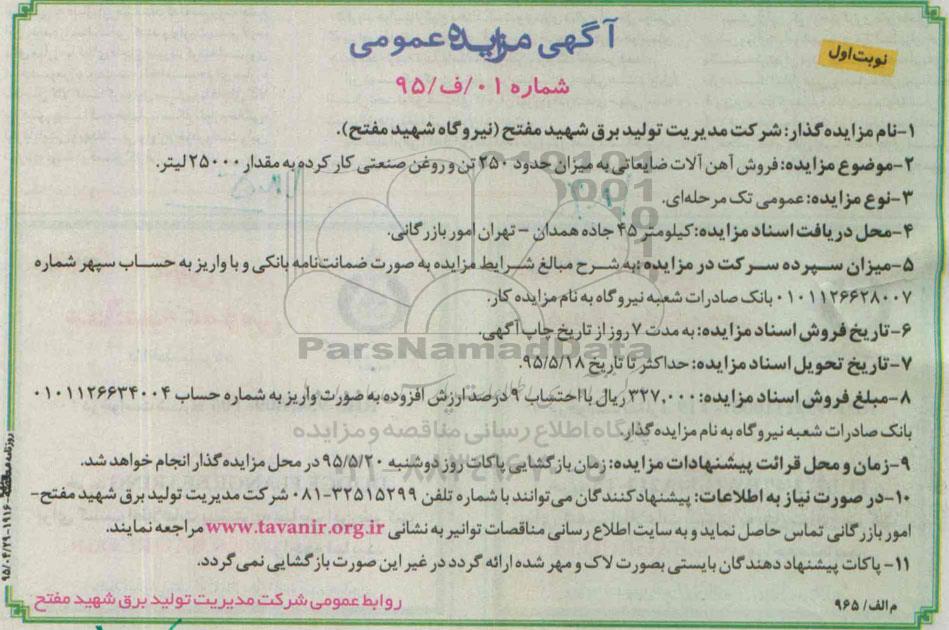 آگهی مزایده عمومی
نوبت اول
شماره ۰۱/ف/۹۵
۱-نام مزایده‌گذار: شرکت مدیریت تولید برق شهید مفتح (نیروگاه شهید مفتح).
۲-موضوع مزایده: فروش آهن آلات ضایعاتی به میزان حدود ۲۵۰ تن و روغن صنعتی کارکرده به مقدار ۲۵۰۰۰ لیتر.
۳-نوع مزایده: عمومی تک مرحله‌ای.
۴-محل دریافت اسناد مزایده: کیلومتر ۴۵ جاده همدان - تهران امور بازرگانی.
۵-میزان سپرده سرکت در مزایده: به شرح مبالغ شرایط مزایده به صورت ضمانت‌نامه بانکی و با واریز به حساب سپهر شماره
۰۱۰۱۱۲۶۶۲۸۰۰۷ بانک صادرات شعبه نیروگاه به نام مزایده کار.
۶-تاریخ فروش اسناد مزایده: به مدت ۷ روز از تاریخ چاپ آگهی.
۷-تاریخ تحویل اسناد مزایده: حداکثر تا تاریخ ۹۵/۵/۱۸.
۸-مبلغ فروش اسناد مزایده: ۳۲۷,۰۰۰ ریال با احتساب ۹ درصد ارزش افزوده به صورت واریز به شماره حساب ۰۱۰۱۱۲۶۶۳۴۰۰۴
بانک صادرات شعبه نیروگاه به نام مزایده گذار.
۹-زمان و محل قرائت پیشنهادات مزایده: زمان بازگشایی پاکات روز دوشنبه ۹۵/۵/۲۰ در محل مزایده گذار انجام خواهد شد.
۱۰-در صورت نیاز به اطلاعات: پیشنهادکنندگان می‌توانند با شماره تلفن ۳۲۵۱۵۲۹۹-۰۸۱ شرکت مدیریت تولید برق شهید مفتح-
امور بازرگانی تماس حاصل نماید و به سایت اطلاع رسانی مناقصات توانیر به نشانی www.tavanir.org.ir مراجعه نمایند.
۱۱- پاکات پیشنهاد دهندگان بایستی بصورت لاک و مهر شده ارائه گردد در غیر این صورت بازگشایی نمی گردد.
م الف/ ۹۶۵
روابط عمومی شرکت مدیریت تولید برق شهید مفتح
۹۵/۰۴/۲۹-۱۹۱۶
ParsNamadData
پایگاه اطلاع رسانی مناقصه و مزایده